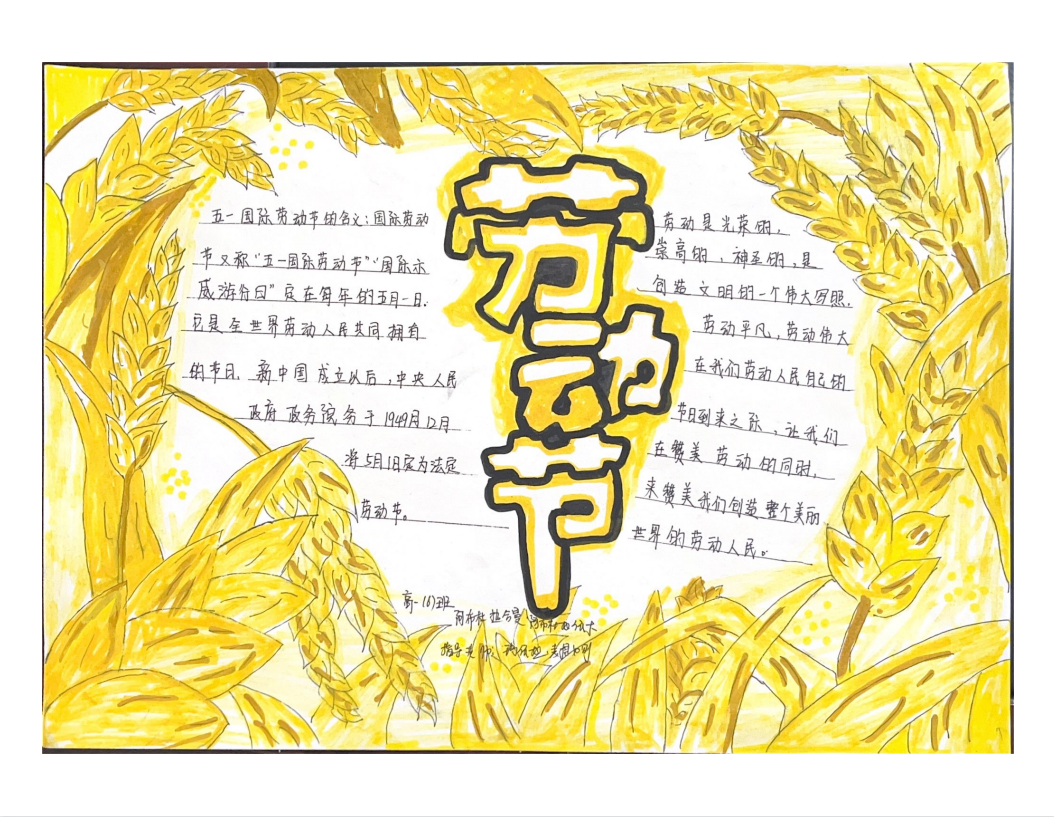 劳动节
五一国际劳动节的含义:国际劳动
节又称"五一国际劳动节""国际示
威游行日"定在每年的五月一日.
它是全世界劳动人民共同拥有
的节日. 新中国成立以后,中央人民
政府政务院务于1949年12月
将5月1日定为法定
劳动节。
劳动是光荣的,
崇高的、神圣的,是
创造文明的一个伟大写照.
劳动平凡,劳动伟大
在我们劳动人民自己的
节日到来之际,让我们
在赞美劳动的同时,
来赞美我们创造整个美丽
世界的劳动人民。
高一(6)班
指导老师: